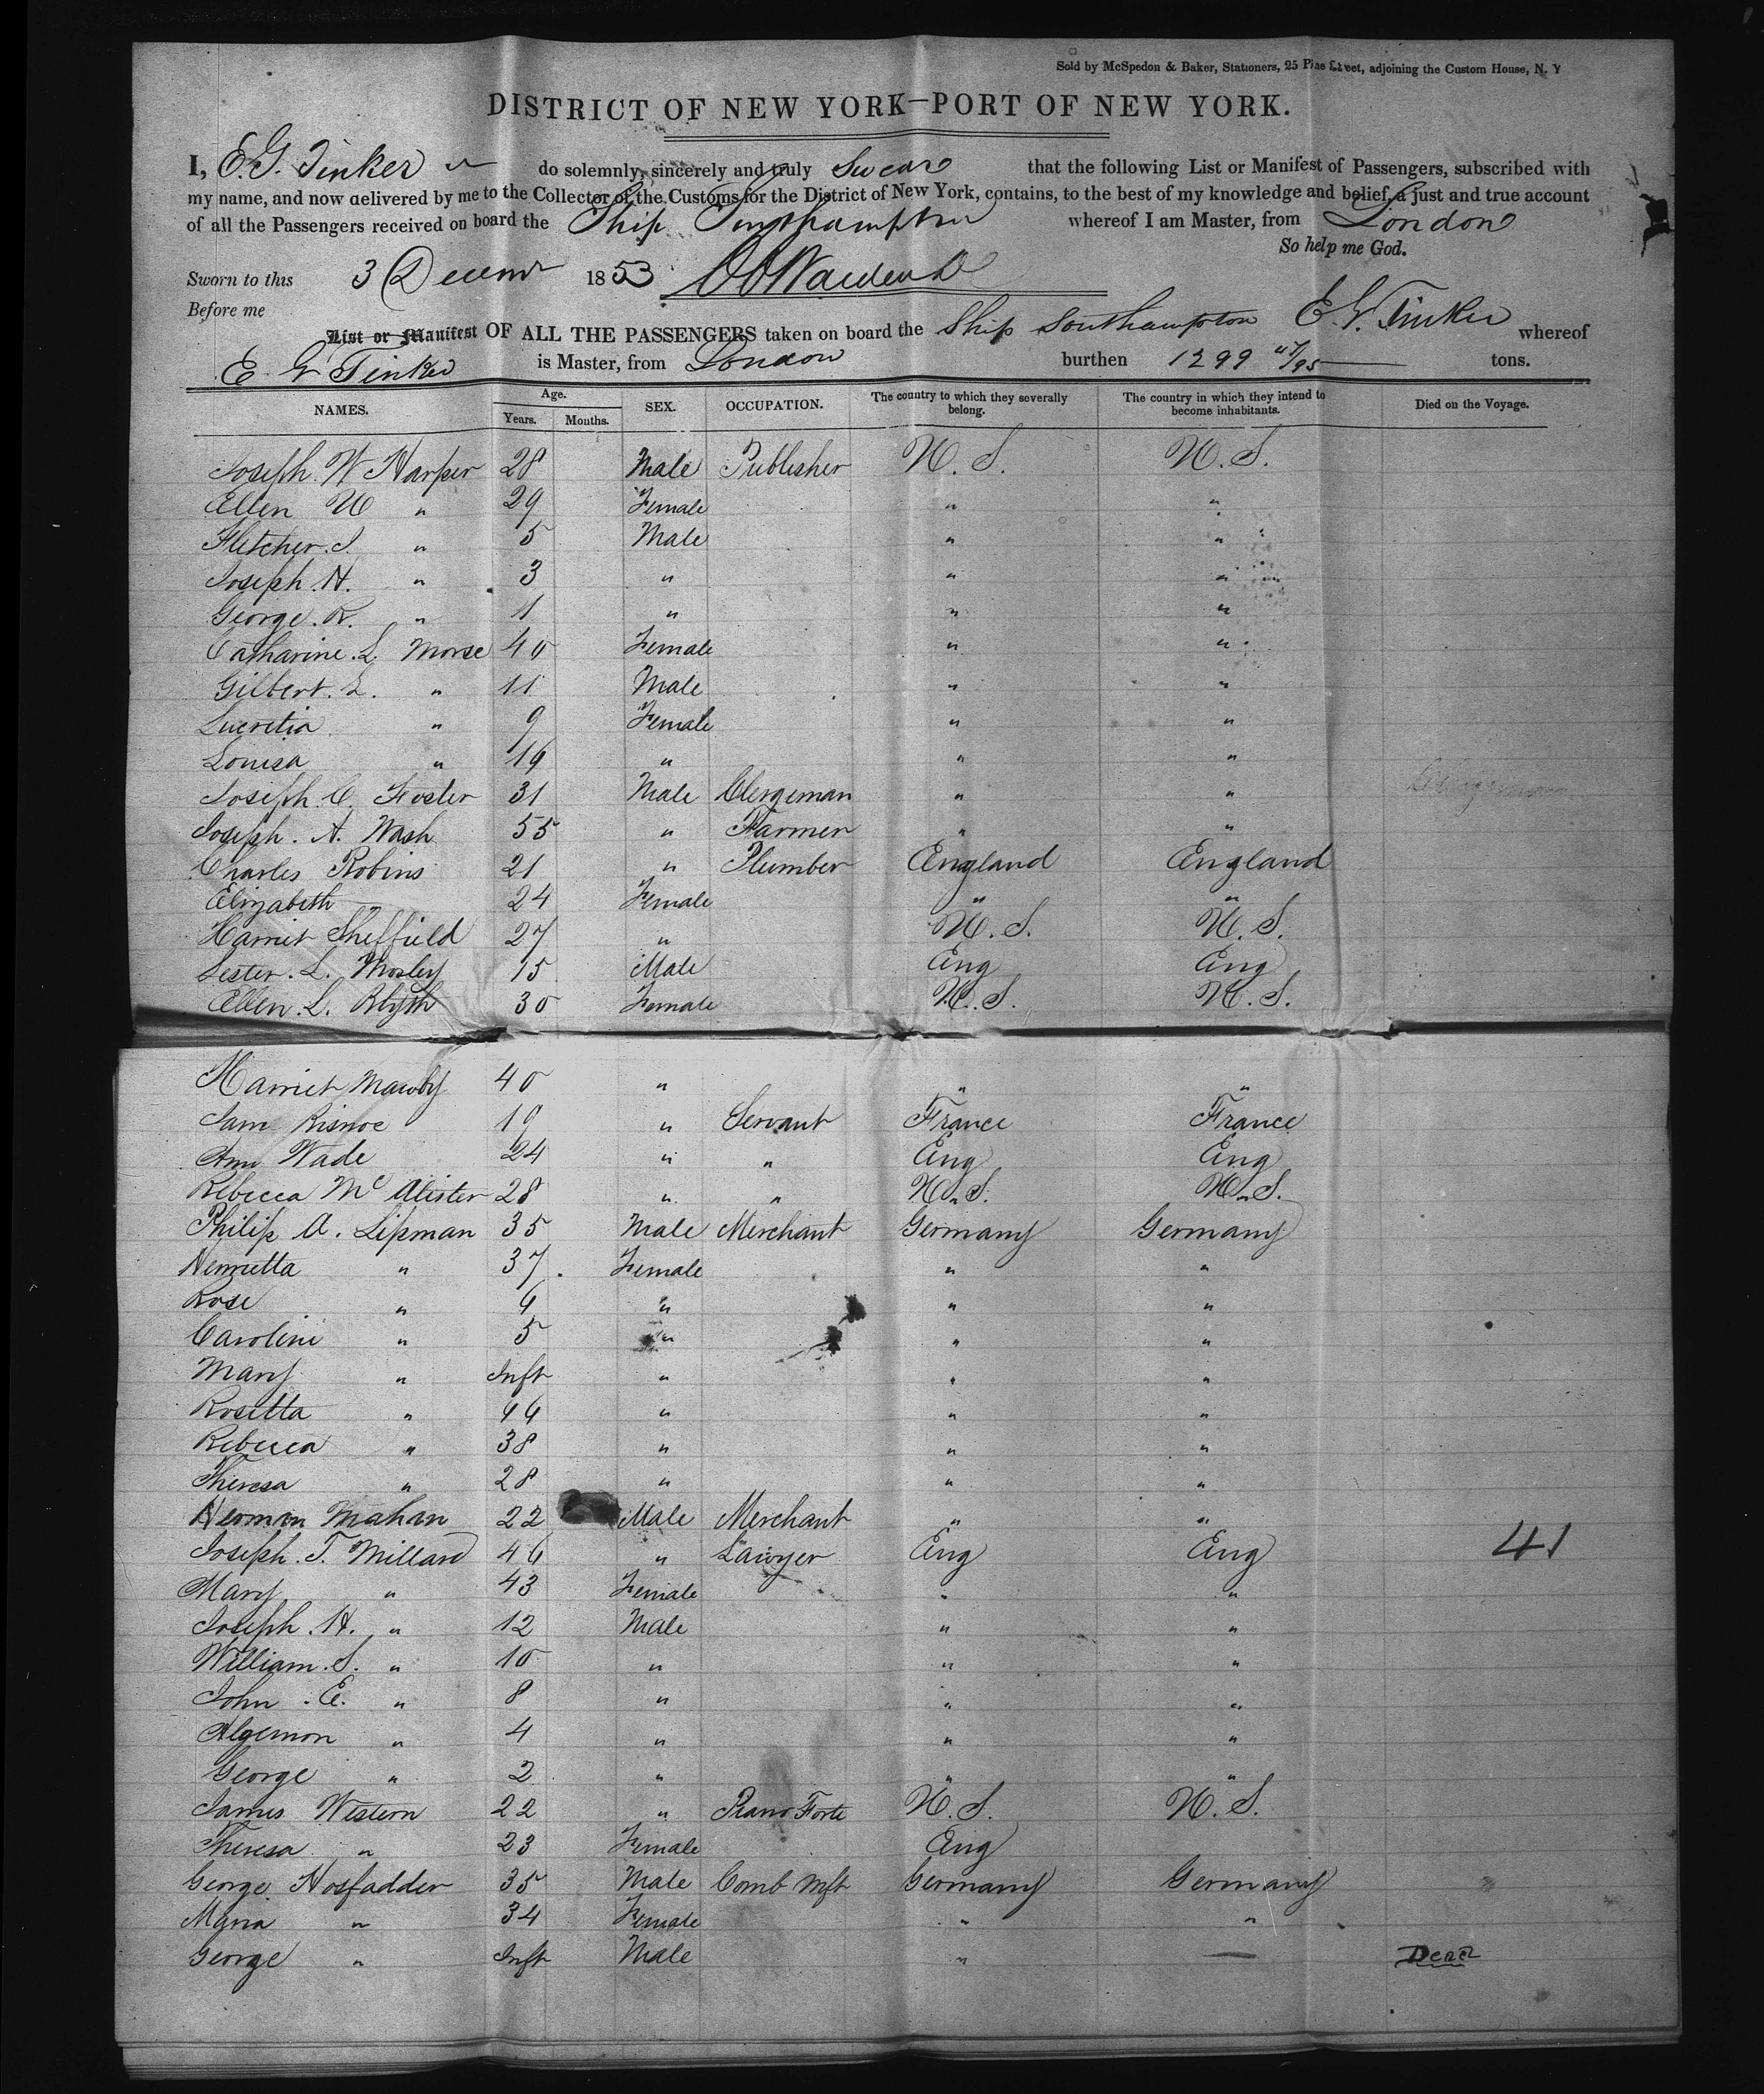 Sold by McSpedon & Baker, Stationers, 25 Pine Street, adjoining the Custom House, N. Y
DISTRICT OF NEW YORK—PORT OF NEW YORK.
I, E. G. Tinker do solemnly, sincerely and truly Swear that the following List or Manifest of Passengers, subscribed with
my name, and now delivered by me to the Collector of the Customs for the District of New York, contains, to the best of my knowledge and belief, a just and true account
of all the Passengers received on board the Ship Southampton whereof I am Master, from London
So help me God.
Sworn to this 3 Decemr 1853
Before me
List or Manifest OF ALL THE PASSENGERS taken on board the Ship Southampton E. G. Tinker whereof
E G Tinker is Master, from London burthen 1299 /95 tons.
NAMES. Age. Years. Months. SEX. OCCUPATION. The country to which they severally belong. The country in which they intend to become inhabitants. Died on the Voyage.
Joseph W Harper 28 Male Publisher U. S. U. S.
Ellen U " 29 Female " "
Fletcher. J. " 5 Male " "
Joseph. H. " 3 " " "
George. R. " 1 " " "
Catharine. L. Morse 40 Female " "
Gilbert. L. " 11 Male " "
Lucretia " 9 Female " "
Louisa " 19 " " "
Joseph. C. Foster 31 Male Clergeman " "
Joseph. A. Wash 55 " Farmer " "
Charles Robins 21 " Plumber England England
Elizabeth " 24 Female " "
Harriet Sheffield 27 " U. S. U. S.
Lester. L. Mosley 15 Male Eng Eng
Ellen. L. Blyth 30 Female U. S. U. S.
Harriet Mawby 40 " " "
Jam 19 " Servant France France
Ann Wade 24 " " Eng Eng
Rebecca Mc Alister 28 " " U. S. U. S.
Philip A. Lipman 35 Male Merchant Germany Germany
Henrietta " 37 Female " "
Rose " 9 " " "
Caroline " 5 " " "
Mary " Inft " " "
Rosetta " 44 " " "
Rebecca " 38 " " "
Theresa " 28 " " "
Herman Mahan 22 Male Merchant " "
Joseph. T. Millard 46 " Lawyer Eng Eng 41
Mary " 43 Female " "
Joseph. H. " 12 Male " "
William. S. " 10 " " "
John. E. " 8 " " "
Algernon " 4 " " "
George " 2 " " "
James Western 22 " Piano Forte U. S. U. S.
Theresa " 23 Female Eng
George Hosfadder 35 Male Comb Mft Germany Germany
Maria " 34 Female " "
George " Inft Male " — Dead